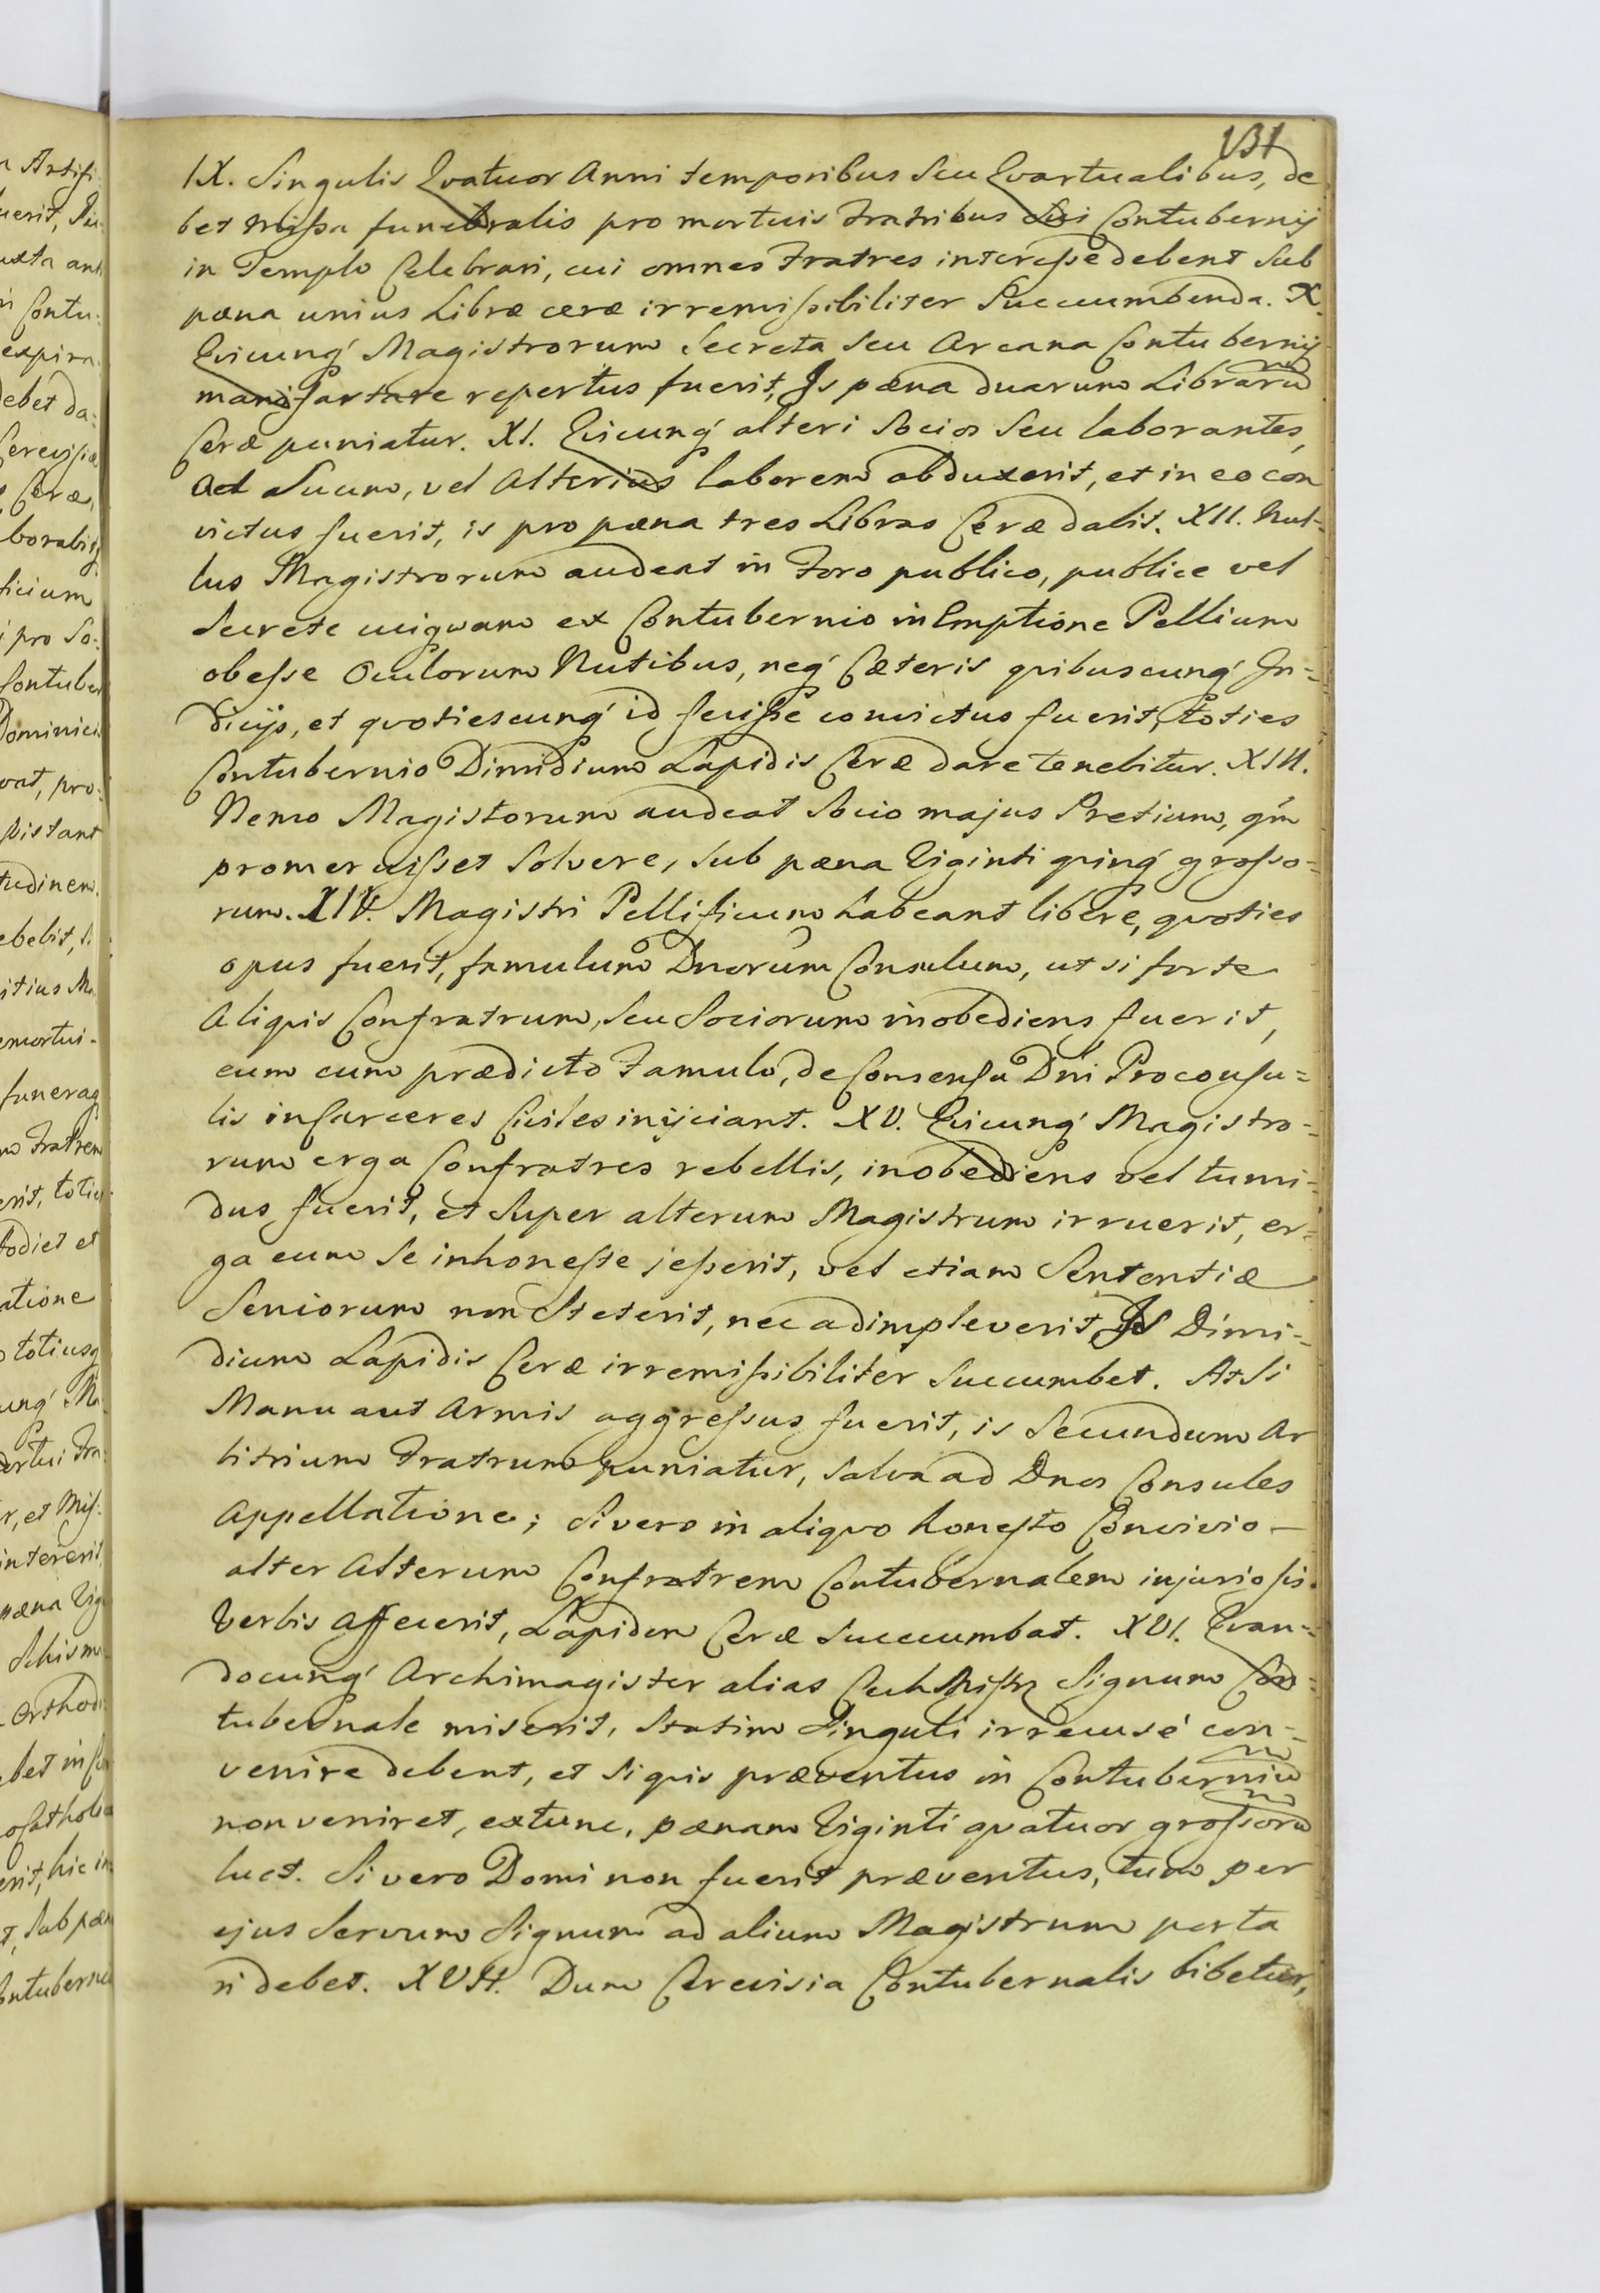 131
IX. Singulis Qvatuor Anni temporibus Seu Qvartualibus, de
bet Missa funebralis pro mortuis Fratribus Sui Contubernij
in Templo Celebrari, cui omnes Fratres interesse debent Sub
pæna unius Libræ ceræ irremissibiliter Succumbenda. X.
Qvicunq' Magistrorum Secreta Seu Arcana Contubernij
manifestare repertus fuerit, Is pæna duarum Librarū
Ceræ puniatur. XI. Qvicunq' alteri Socios Seu laborantes,
ad Suum, vel Alterius laborem abduxerit, et in eo con
victus fuerit, is pro pæna tres Libras Ceræ dabit. XII. Nul-
lus Magistrorum audeat in Foro publico, publice vel
Secrete cuiqvam ex Contubernio in Emptione Pellium
obesse Oculorum Nutibus, neq' Cæteris qvibuscunq' In=
dicijs, et qvotiescunq' id fecisse convictus fuerit, toties
Contubernio Dimidium Lapidis Ceræ dare tenebitur. XIII.
Nemo Magistorum audeat Socio majus Pretium, qm̄
promeruisset Solvere, Sub pæna Viginti qvinq' grosso=
rum. XIV. Magistri Pellificum habeant libere, qvoties
opus fuerit, famulum Dnorum Consulum, ut si forte
Aliqvis Confratrum, Seu Sociorum inobediens fuerit,
eum cum prædicto Famulo, de Consensu Dni Proconsu=
lis in Carceres Civiles inijciant. XV. Qvicunq' Magistro-
rum erga Confratres rebellis, inobediens vel tumi-
dus fuerit, et Super alterum Magistrum irruerit, er=
ga eum Se inhoneste jesserit, vel etiam Sententiæ
Seniorum non Steterit, nec adimpleverit, Is Dimi-
dium Lapidis Ceræ irremissibiliter Succumbet. At Si
Manu aut Armis aggressus fuerit, is Secundum Ar
bitrium Fratrum puniatur, Salva ad Dnos Consules
Appellatione; Si vero in aliqvo honesto Convivio—
alter Alterum Confratrem Contubernalem injuriosis
Verbis Affecerit, Lapidem Ceræ Succcumbat. XVI. Qvan-
docunq' Archimagister alias Signum Con=
tubernale miserit, Statim Singuli irrecusé con-
venire debent, et Si qvis præventus in Contuberniū
non veniret, extunc, pænam Viginti qvatuor grossorū
luet. Si vero Domi non fuerit præventus, tum per
ejus Servum Signum ad alium Magistrum porta
ri debet. XVII. Dum Cerevisia Contubernalis bibetur,